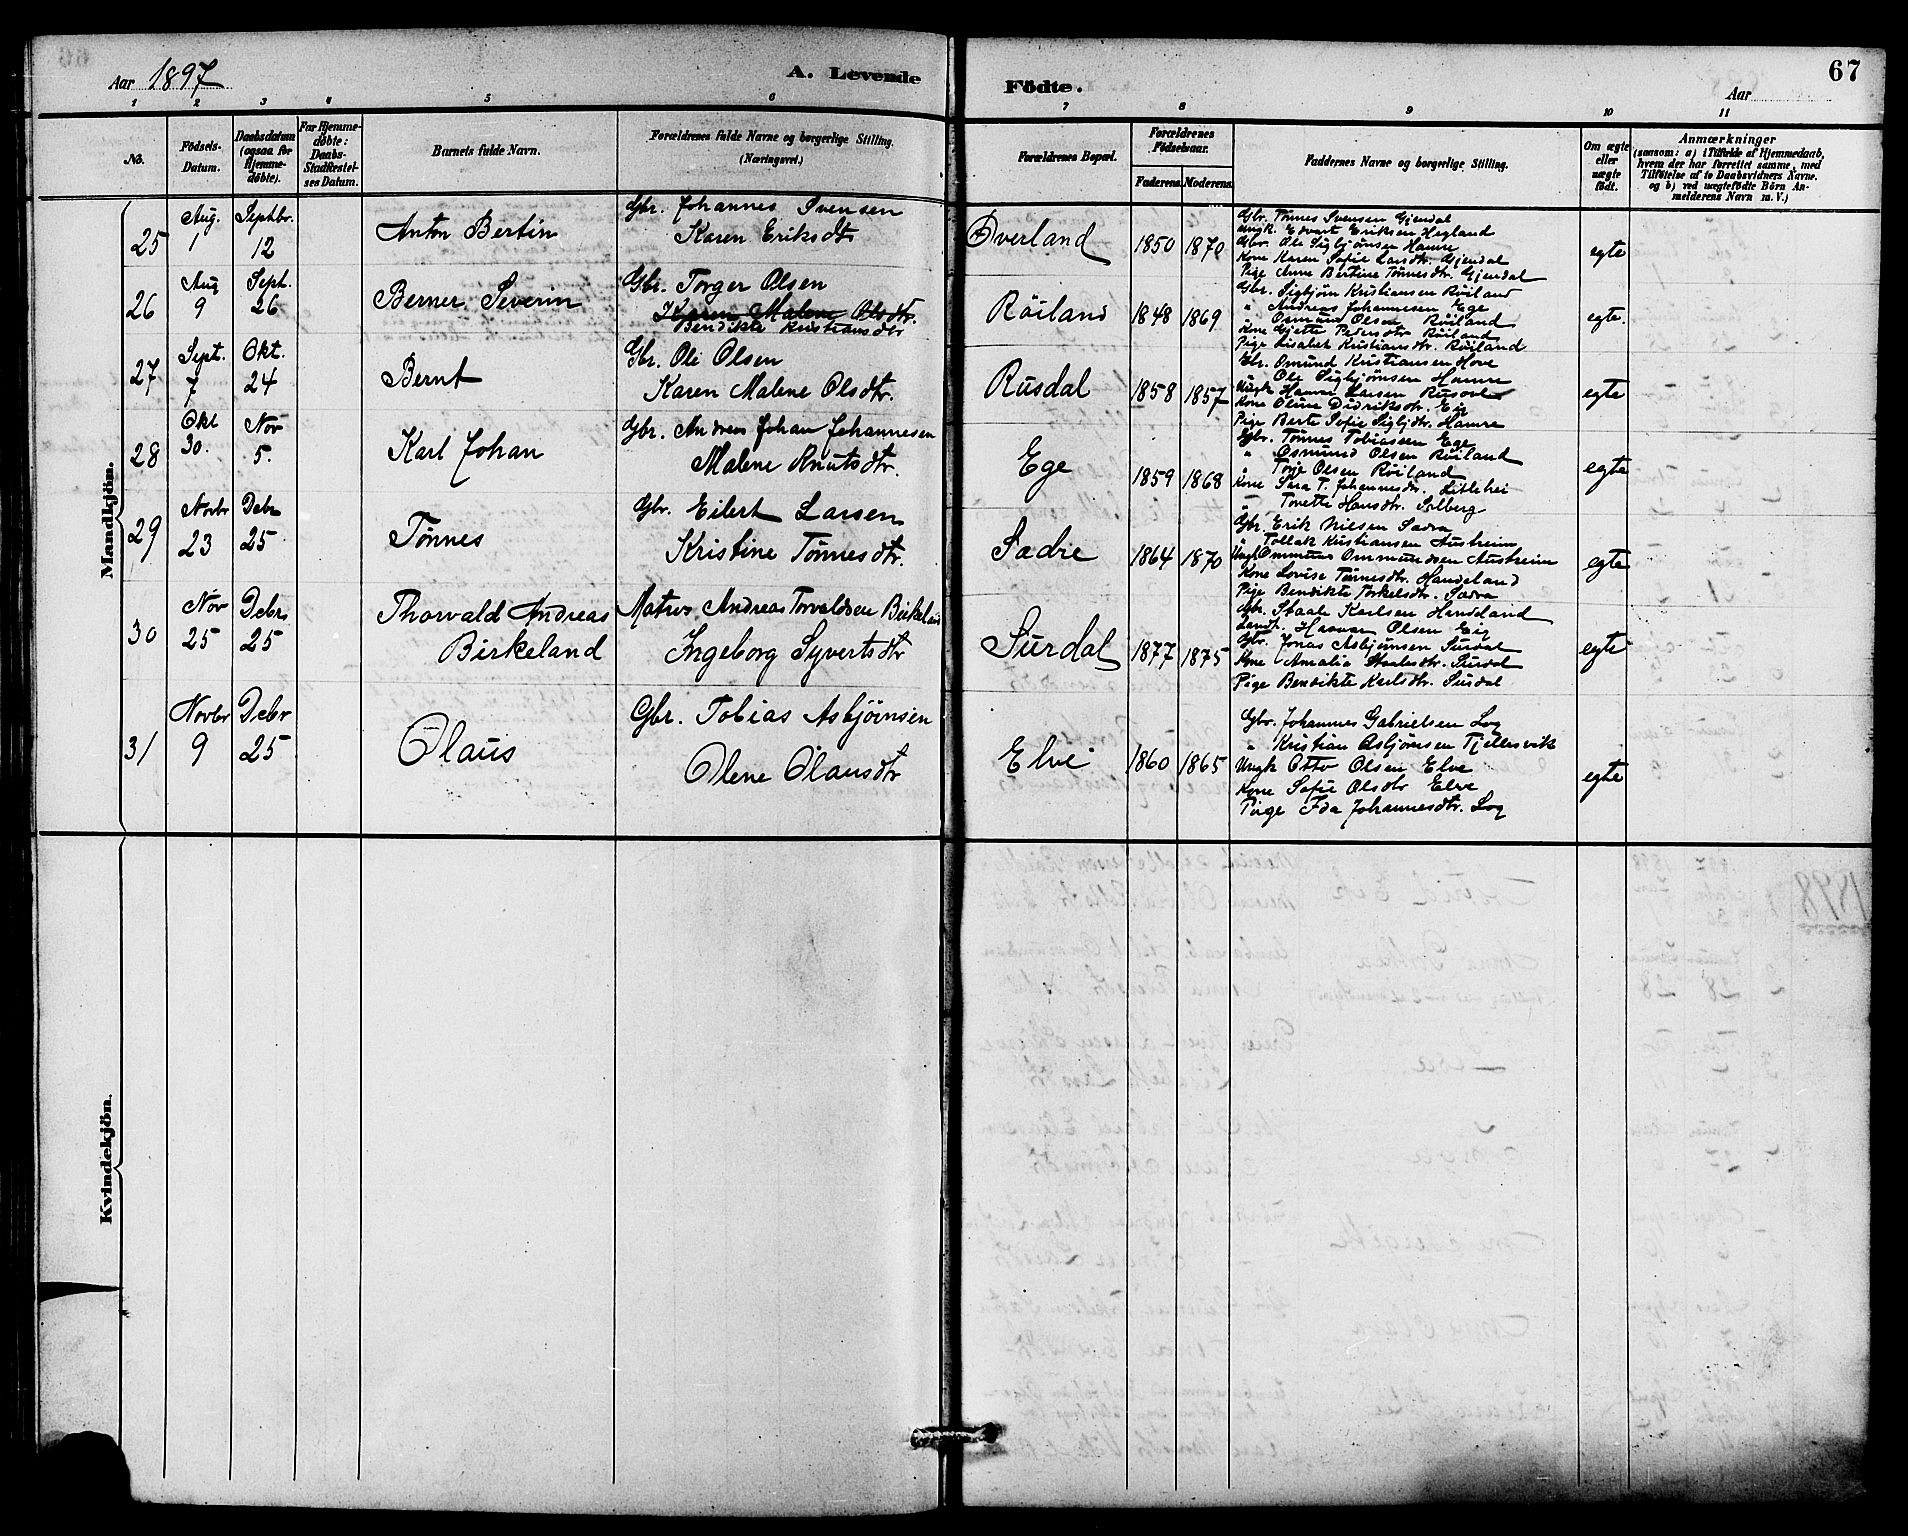 Aar 1897
A. Levende
Födte.
67
Aar
1 2 3 4 5 6 7 8 9 10 11
No.
Födsels-Datum.
Daabsdatum (ogsaa for Hjemme-döbte).
For Hjemme-döbte: Daabs-Stadfæstel-ses Datum.
Barnets fulde Navn.
Forældrenes fulde Navne og borgerlige Stilling. (Næringsvei.)
Forældrenes Bopæl.
Forældrenes Födselsaar.
Faderens. Moderens.
Faddernes Navne og borgerlige Stilling.
Om ægte eller uægte födt.
Anmærkninger
(saasom: a) i Tilfælde af Hjemmedaab,
hvem der har forrettet samme, med
Tilföielse af to Daabsvidners Navne,
og b) ved uægtefödte Börn An-
melderens Navn m. V.)
Mandkjön.
25 Aug. 1 Septbr. 12 Anton Bertin
Gbr. Johannes Svensen
Karen Eriksdtr
Øverland 1850 1870
Gbr. Tønnes Svensen Gjendal
Ungk. Edvart Eriksen Hegland
Gbr. Ole Sigbjørnsen Hamre
Kone Karen Sofie Larsdtr. Gjendal
Pige Anne Bertine Tønnesdtr. Gjendal
egte
26 Aug 9 Sept. 26 Berner Severin
Gbr. Torger Olsen
Karen Malene Olsdtr.
Bendikte Kristiansdtr
Røiland 1848 1869
Gbr. Sigbjørn Kristiansen Røiland
" Andreas Johannesen Ege
" Osmund Olsen Røiland
Kone Gjette Pedersdtr Røiland
Pige Lisabet Kristiansdtr. Røiland
egte.
27 Sept. 7 Okt. 24 Bernt
Gbr. Ole Olsen
Karen Malene Olsdtr.
Rusdal 1858 1857
Gbr. Osmund Kristiansen Hove
" Ole Sigbjørnsen Hamre
Ungk Larsen
Kone Oline Didriksdtr. Eig
Pige Berte Sofie Sigbjdtr. Hamre
egte
28 Okt 30. Nov 5. Karl Johan
Gbr. Andreas Johan Johannesen
Malene Knutsdtr.
Ege 1859 1868
Gbr. Tønnes Tobiassen Ege
" Osmund Olsen Røiland
" Olsen Røiland
Kone Sara T. Johannesdtr. Litlehei
" Tonette Hansdtr. Solberg
egte
29 Novbr 23 Debr 25 Tønnes
Gbr. Eilert Larsen
Kristine Tønnesdtr.
Sædre 1864 1870
Gbr. Erik Nilsen Sædre
" Tollak Kristiansen Austreim
Ungk Ommund Ommundsen Austreim
Kone Lovise Tønnesdtr. Handeland
Pige Bendikte Torkelsdtr. Sædre
egte
30 Nov 25 Debr 25 Thorvald Andreas
Birkeland
Matros Andreas Torvaldsen Birkeland
Ingeborg Syvertsdtr
Surdal 1877 1875
Gbr. Staale Karlsen Handeland
Landh. Olsen Eig
Gbr. Jonas Asbjørnsen Surdal
Kone Amalia Staalesdtr. Surdal
Pige Bendikte Karlsdtr. Surdal
egte
31 Novbr 9 Debr 25 Olaus
Gbr. Tobias Asbjørnsen
Olene Olausdtr
Elve 1860 1865
Gbr. Johannes Gabrielsen Log
" Kristian Asbjørnsen Tjellesvik
Ungk Otto Olsen Elve
Kone Sofie Olsdtr Elve
Pige Ida Johannesdtr. Log
egte
Kvindekjön.